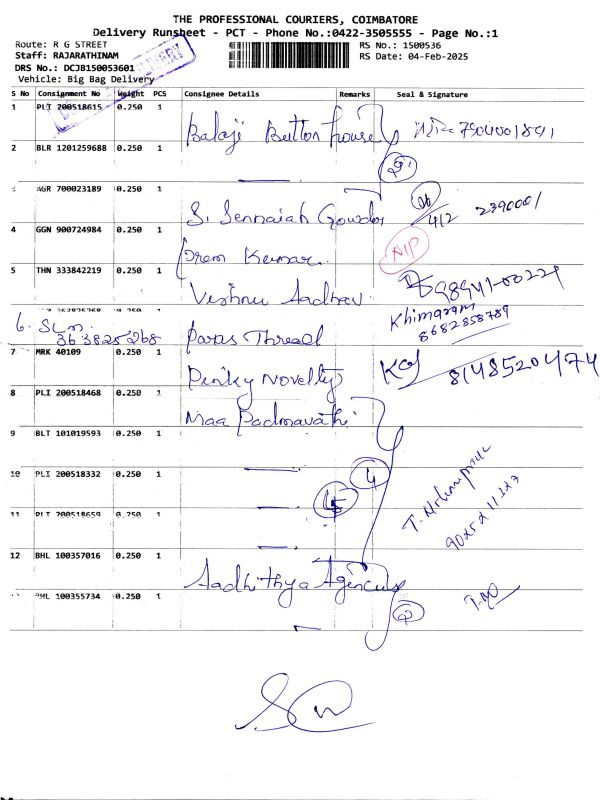 THE PROFESSIONAL COURIERS, COIMBATORE
Delivery Runsheet - PCT - Phone No.:0422-3505555 - Page No.:1
Route: R G STREET
RS No.: 1500536
Staff: RAJARATHINAM
RS Date: 04-Feb-2025
DRS No.: DCJB150053601
Vehicle: Big Bag Delivery
S No Consignment No Weight PCS Consignee Details Remarks Seal & Signature
1 PLI 200518615 0.250 1 Balaji Button house 7904001891
2 BLR 1201259688 0.250 1 2
3 AGR 700023189 0.250 1 S. Sennaiah Gowder 4/2 2390001
4 GGN 900724984 0.250 1 Prem Kumar N/P
5 THN 333842219 0.250 1 Vishnu Aadhav 98941-00229
6. SLM 363825268 Paras Thread Khimaram 8682858789
7 MRK 40109 0.250 1 Pinky Novelty 8148520474
8 PLI 200518468 0.250 1 Maa Padmavathi
9 BLT 101019593 0.250 1
10 PLI 200518332 0.250 1 4
11 PLI 200518659 0.250 1
12 BHL 100357016 0.250 1 Aadhithya Agencies
13 BHL 100355734 0.250 1 2